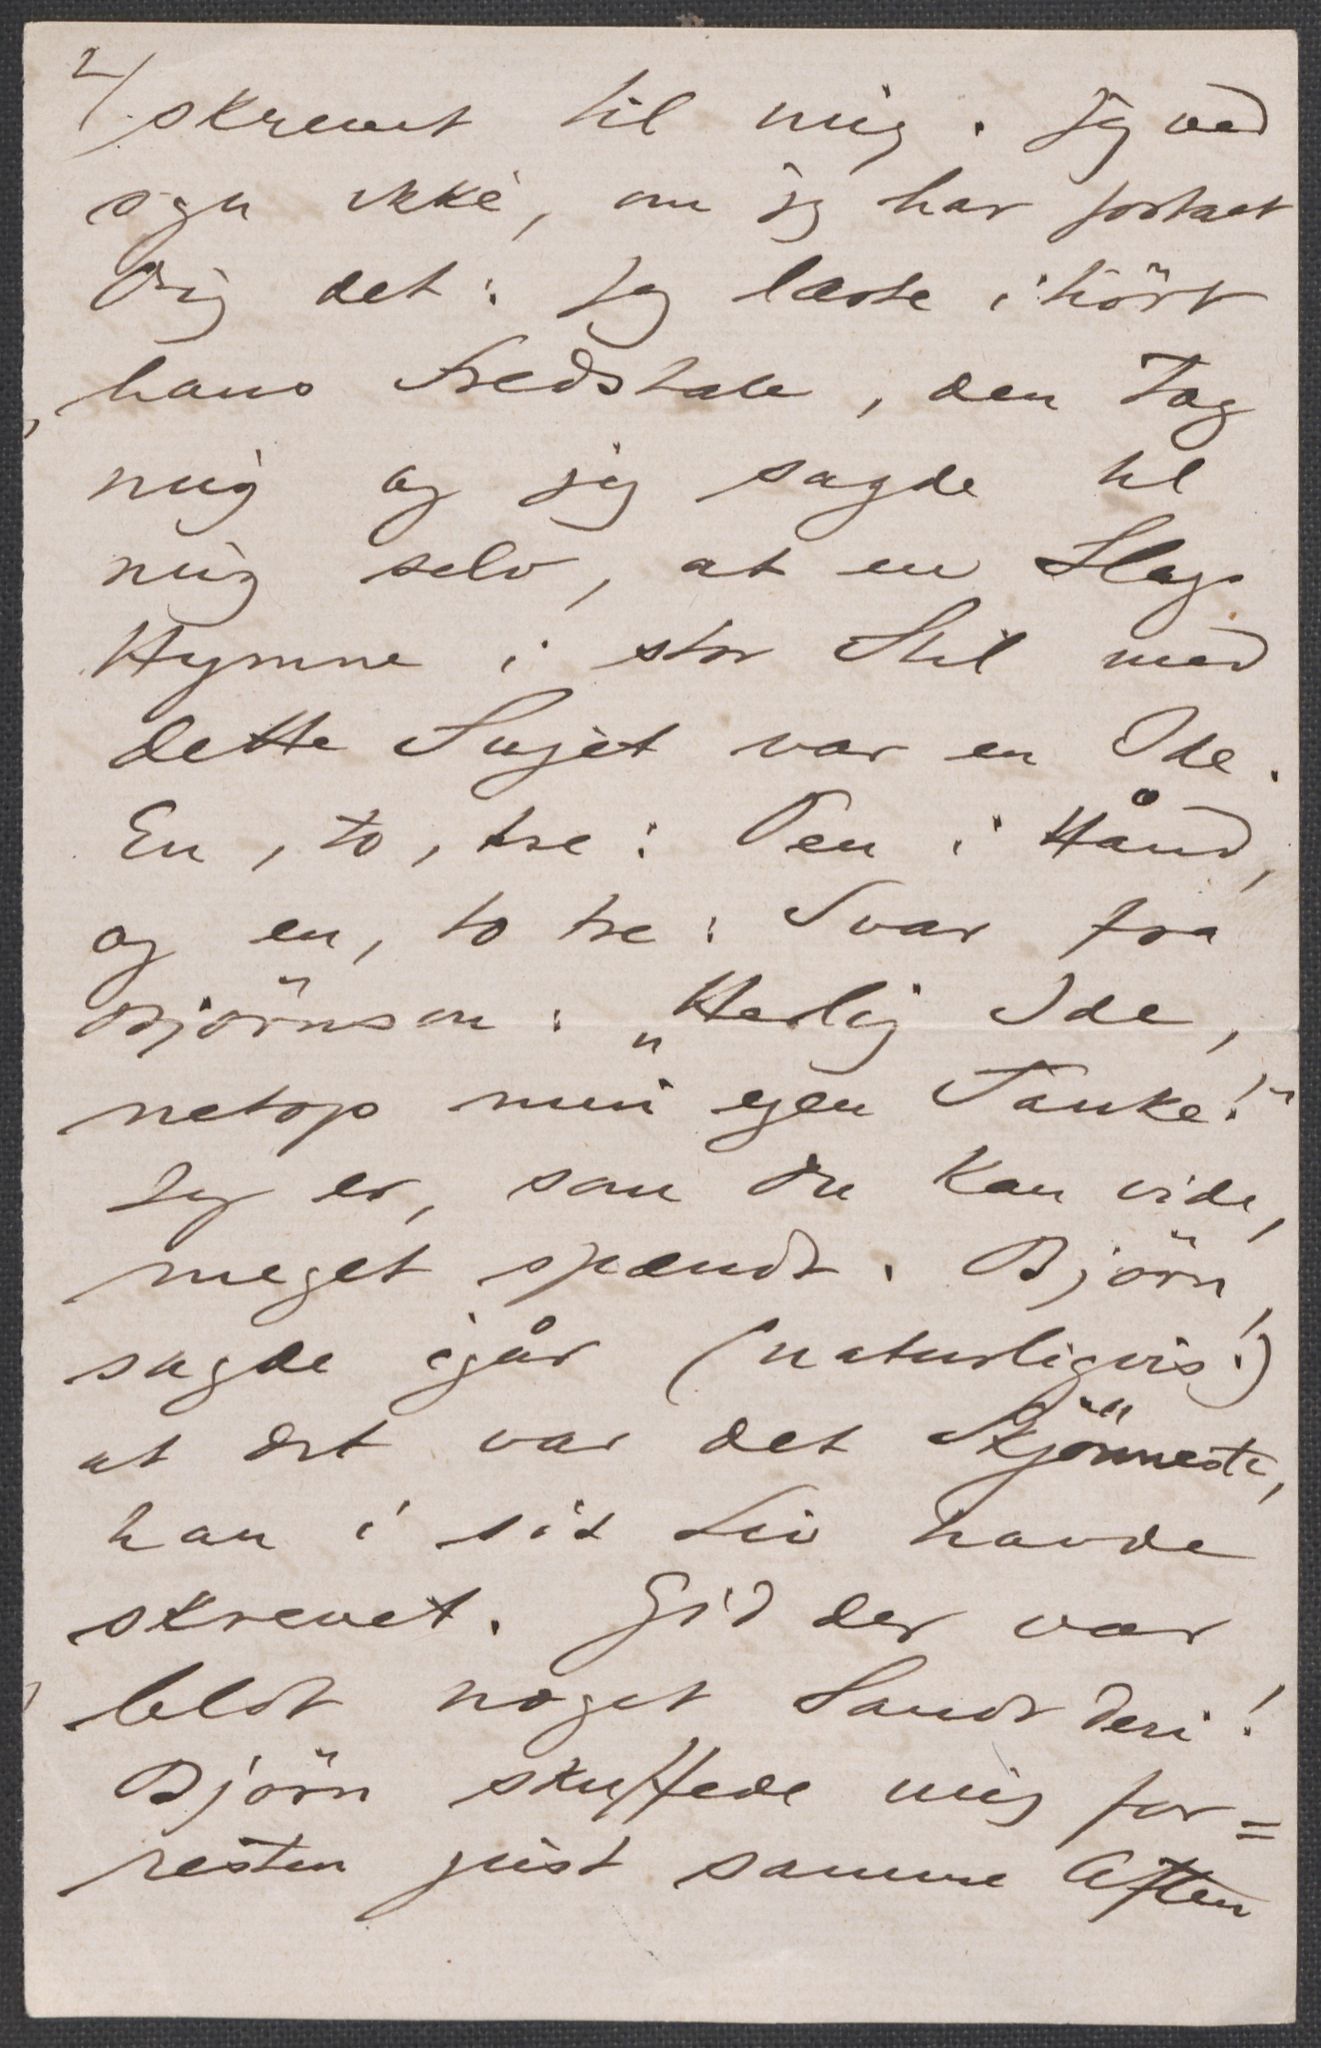 2/
skrevet til mig. Jeg ved
sgu ikke, om jeg har fortalt
Dig det: Jeg læste ihöst
hans Fredstale, den Tog
mig og jeg sagde til
mig selv, at en Slags
Hymne i stor Stil med
dette Sujet var en Ide.
En, to, tre: Pen i Hånd,
og en, to tre: Svar fra
Björnson: „Herlig Ide,
netop min egen Tanke!"
Jeg er, som Du kan vide,
meget spændt. Björn
sagde igår (naturligvis!)
at det var det Skjönneste,
han i sit Liv havde
skrevet. Gid der var
blot noget Sandt deri!
Björn skuffede mig for=
resten just samme Aften